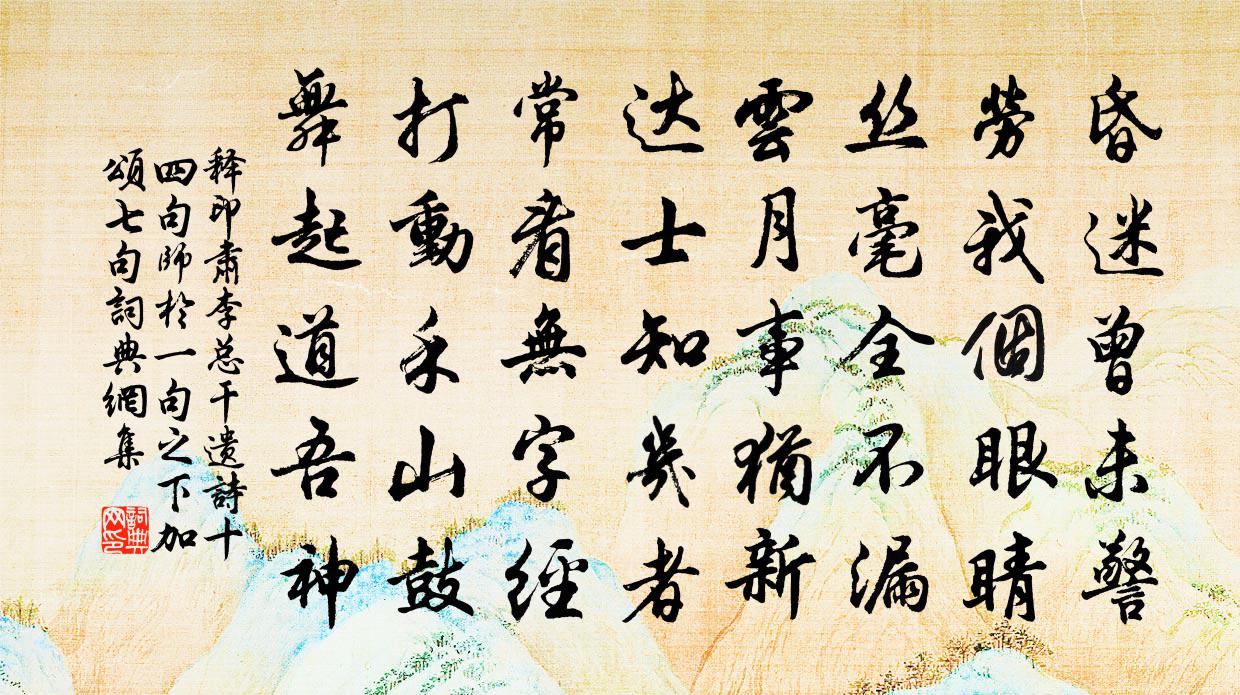 昏迷曾未警
勞我個眼睛
丝毫全不漏
雲月事猶新
达士知幾者
常看無字經
打動禾山鼓
舞起道吾神
释印肅李总干遗詩十
四句師於一句之下加
頌七句詞典網集
詞典網印